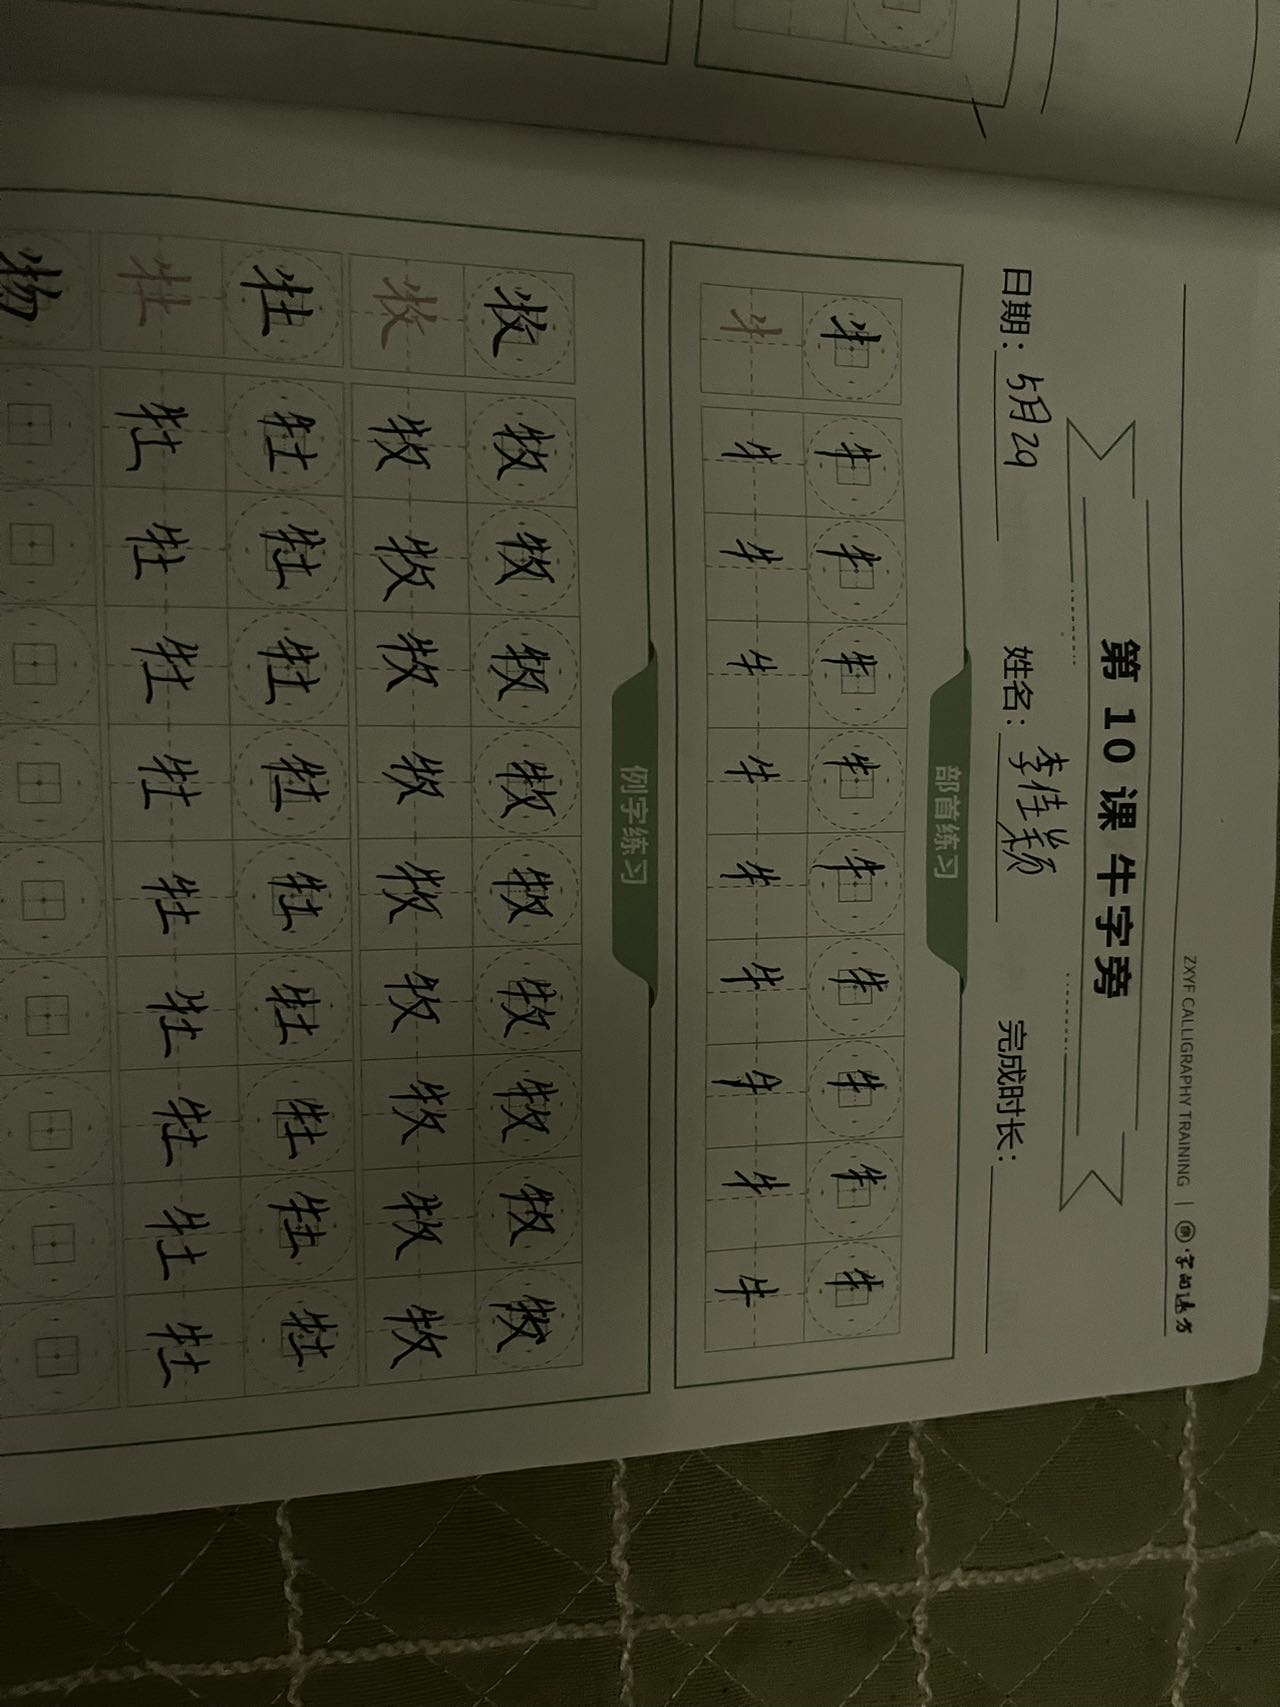 ZXYF CALLIGRAPHY TRAINING
第 10 课 牛字旁
日期：5月29 姓名：李佳颖 完成时长：
部首练习
牜 牜 牜 牜 牜 牜 牜 牜 牜 牜
牜 牜 牜 牜 牜 牜 牜 牜 牜 牜
例字练习
牧 牧 牧 牧 牧 牧 牧 牧 牧 牧
牧 牧 牧 牧 牧 牧 牧 牧 牧 牧
牡 牡 牡 牡 牡 牡 牡 牡 牡 牡
牡 牡 牡 牡 牡 牡 牡 牡 牡 牡
物